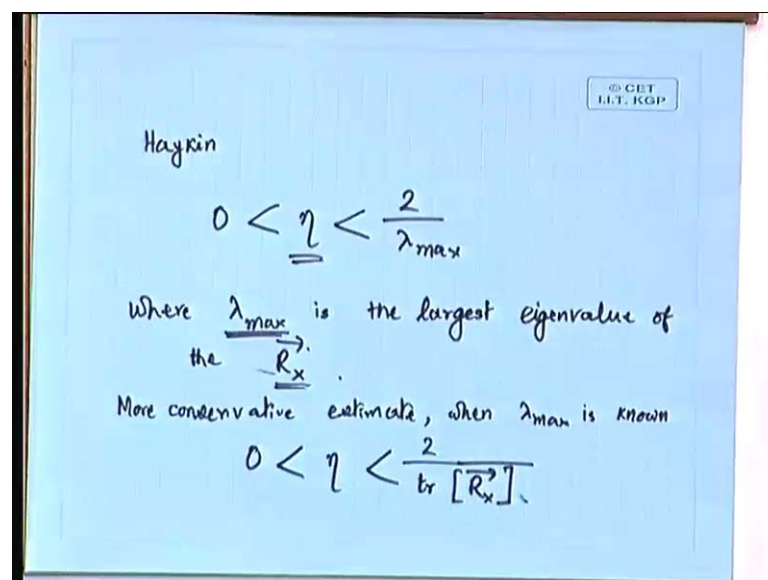 © CET
I.I.T. KGP
Haykin
0 < η < 2/λmax
Where λmax is the largest eigenvalue of
the R⃗x.
More conservative estimate, when λmax is known
0 < η < 2/tr [R⃗x].